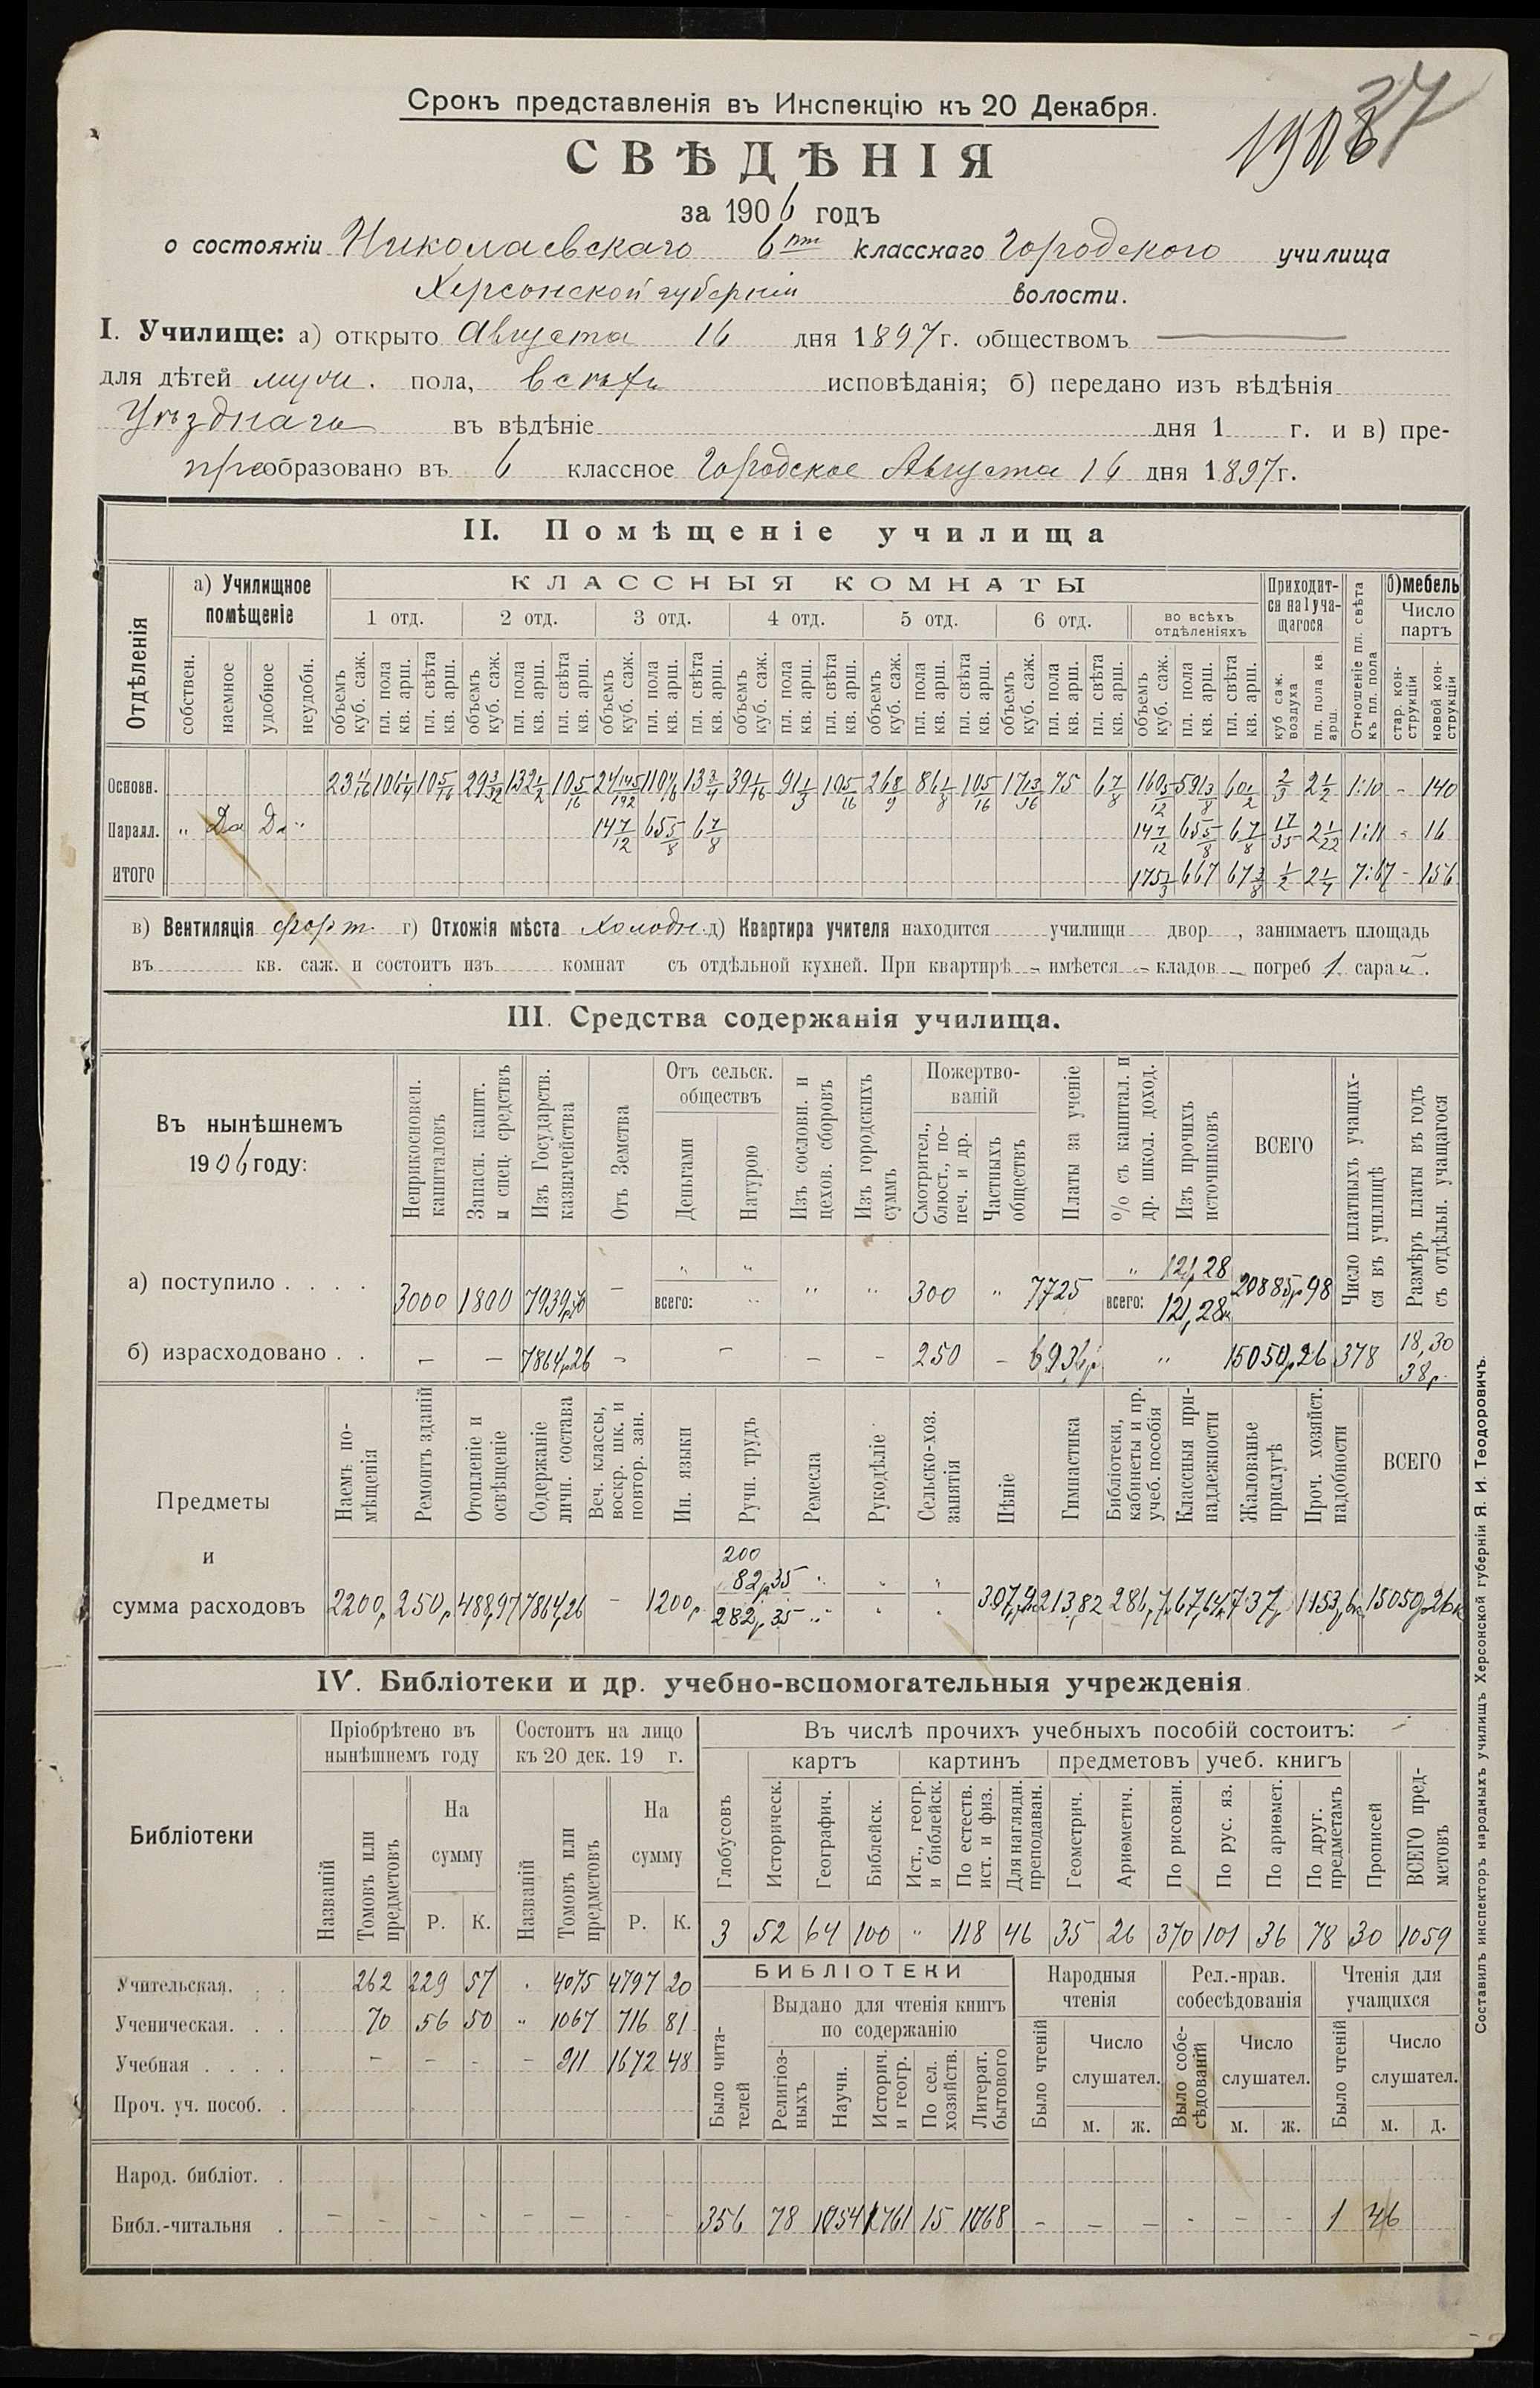 37
Срокъ представленія въ Инспекцію къ 20 Декабря.
1906
СВѢДѢНІЯ
за 1906 годъ
о состояніи Николаевскаго 6ти класснаго Городского училища
Херсонской губерніи волости.
I. Училище: а) открыто Августа 16 дня 1897 г. обществомъ —
для дѣтей муж. пола, всѣхъ исповѣданія; б) передано изъ вѣдѣнія
Уѣзднаго въ вѣдѣніе дня 1 г. и в) пре-
преобразовано въ 6 классное Городское Августа 16 дня 1897 г.
II. Помѣщеніе училища
Отдѣленія
а) Училищное помѣщеніе
КЛАССНЫЯ КОМНАТЫ
Приходит-ся на 1 уча-щагося
Отношеніе пл. свѣта къ пл. пола
б) мебель
Число партъ
1 отд. 2 отд. 3 отд. 4 отд. 5 отд. 6 отд. во всѣхъ отдѣленіяхъ
собствен. наемное удобное неудобн.
объемъ куб. саж. пл. пола кв. арш. пл. свѣта кв. арш.
объемъ куб. саж. пл. пола кв. арш. пл. свѣта кв. арш.
объемъ куб. саж. пл. пола кв. арш. пл. свѣта кв. арш.
объемъ куб. саж. пл. пола кв. арш. пл. свѣта кв. арш.
объемъ куб. саж. пл. пола кв. арш. пл. свѣта кв. арш.
объемъ куб. саж. пл. пола кв. арш. пл. свѣта кв. арш.
объемъ куб. саж. пл. пола кв. арш. пл. свѣта кв. арш.
куб саж. воздуха пл. пола кв арш.
стар. кон-струкціи новой кон-струкціи
Основн. 23 11/16 106 1/4 10 5/16 29 3/32 132 1/2 10 5/16 24 145/192 13 3/4 39 1/16 91 1/3 10 5/16 26 8/9 86 1/8 10 5/16 17 13/16 75 6 7/8 160 5/12 591 3/8 60 1/2 2/3 2 1/2 1:10 - 140
Паралл. " Да Да " 14 7/12 65 5/8 6 7/8 14 7/12 65 5/8 6 7/8 17/35 2 1/22 1:11 - 16
ИТОГО 175 1/3 667 67 3/8 1/2 2 1/7 7:67 - 156
в) Вентиляція форт. г) Отхожія мѣста холодн. д) Квартира учителя находится училищи двор , занимаетъ площадь
въ кв. саж. и состоитъ изъ комнат съ отдѣльной кухней. При квартирѣ - имѣется - кладов - погреб 1 сарай.
III. Средства содержанія училища.
Въ нынѣшнемъ
1906 году:
Неприкосновен. капиталовъ
Запасн. капит. и спец. средствъ
Изъ Государств. казначейства
Отъ Земства
Отъ сельск. обществъ
Деньгами
Натурою
Изъ сословн. и цехов. сборовъ
Изъ городскихъ суммъ
Пожертво-ваній
Смотрител., блюст., по-печ. и др.
Частныхъ обществъ
Платы за ученіе
% съ капитал. и др. школ. доход.
Изъ прочихъ источниковъ
ВСЕГО
Число платныхъ учащих-ся въ училищѣ
Размѣръ платы въ годъ съ отдѣльн. учащагося
а) поступило . . . . 3000 1800 7939р70 - " " всего: " " " 300 " 7725 " 121,28 всего: 121,28к 20885р98
б) израсходовано . . - - 7864р26 - - - - 250 - 6936р " 15050р26 378 18,30 38р.
Предметы
и
сумма расходовъ
Наемъ по-мѣщенія
Ремонтъ зданій
Отопленіе и освѣщеніе
Содержаніе личн. состава
Веч. классы, воскр. шк. и повтор. зан.
Ин. языки
Ручн. трудъ
Ремесла
Рукодѣліе
Сельско-хоз. занятія
Пѣніе
Гимнастика
Библіотеки, кабинеты и пр. учеб. пособія
Классныя при-надлежности
Жалованье прислугѣ
Проч. хозяйст. надобности
ВСЕГО
200
82р35 " " "
2200р 250р 488,97 7864,26 - 1200р. 282р35 " " " 213,82 67,64к 737р 15050р26к
IV. Библіотеки и др. учебно-вспомогательныя учрежденія
Библіотеки
Пріобрѣтено въ нынѣшнемъ году
Состоитъ на лицо къ 20 дек. 19 г.
Въ числѣ прочихъ учебныхъ пособій состоитъ:
картъ картинъ предметовъ учеб. книгъ
Названій Томовъ или предметовъ На сумму Р. К.
Названій Томовъ или предметовъ На сумму Р. К.
Глобусовъ Историческ. Географич. Библейск. Ист., геогр. и библейск. По естеств. ист. и физ. Для наглядн. преподаван. Геометрич. Ариѳметич. По рисован. По рус. яз. По ариѳмет. По друг. предметамъ Прописей ВСЕГО пред-метовъ
3 52 64 100 " 118 46 35 26 370 101 36 78 30 1059
Учительская. . . 262 229 57 " 4075 4797 20
Ученическая. . . 70 56 50 " 1067 716 81
Учебная . . . . - - - - 911 1672 48
Проч. уч. пособ. .
БИБЛІОТЕКИ
Было чита-телей
Выдано для чтенія книгъ по содержанію
Религіоз-ныхъ Научн. Историч. и геогр. По сел. хозяйств. Литерат. бытового
Народныя чтенія
Было чтеній Число слушател. м. ж.
Рел.-нрав. собесѣдованія
Было собе-сѣдованій Число слушател. м. ж.
Чтенія для учащихся
Было чтеній Число слушател. м. д.
Народ. библіот. .
Библ.-читальня . - - - - - - - - 356 78 1054 1761 15 1068 - - - - - - 1 46
Составилъ инспекторъ народныхъ училищъ Херсонской губерніи Я. И. Теодоровичъ.